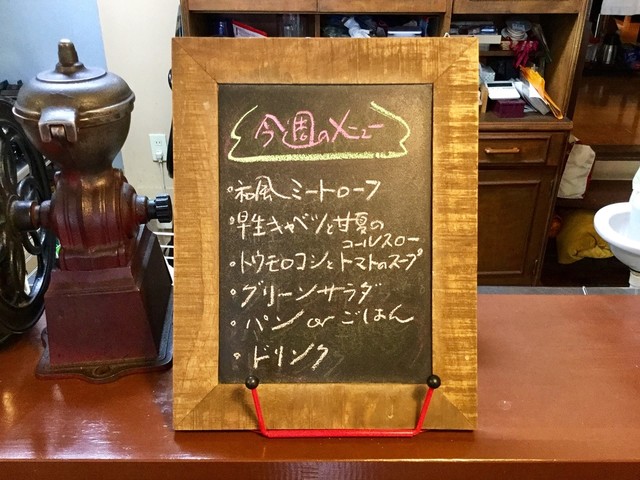 今週のメニュー
・和風ミートローフ
・早生キャベツと甘夏の
コールスロー
・トウモロコシとトマトのスープ
・グリーンサラダ
・パン or ごはん
・ドリンク